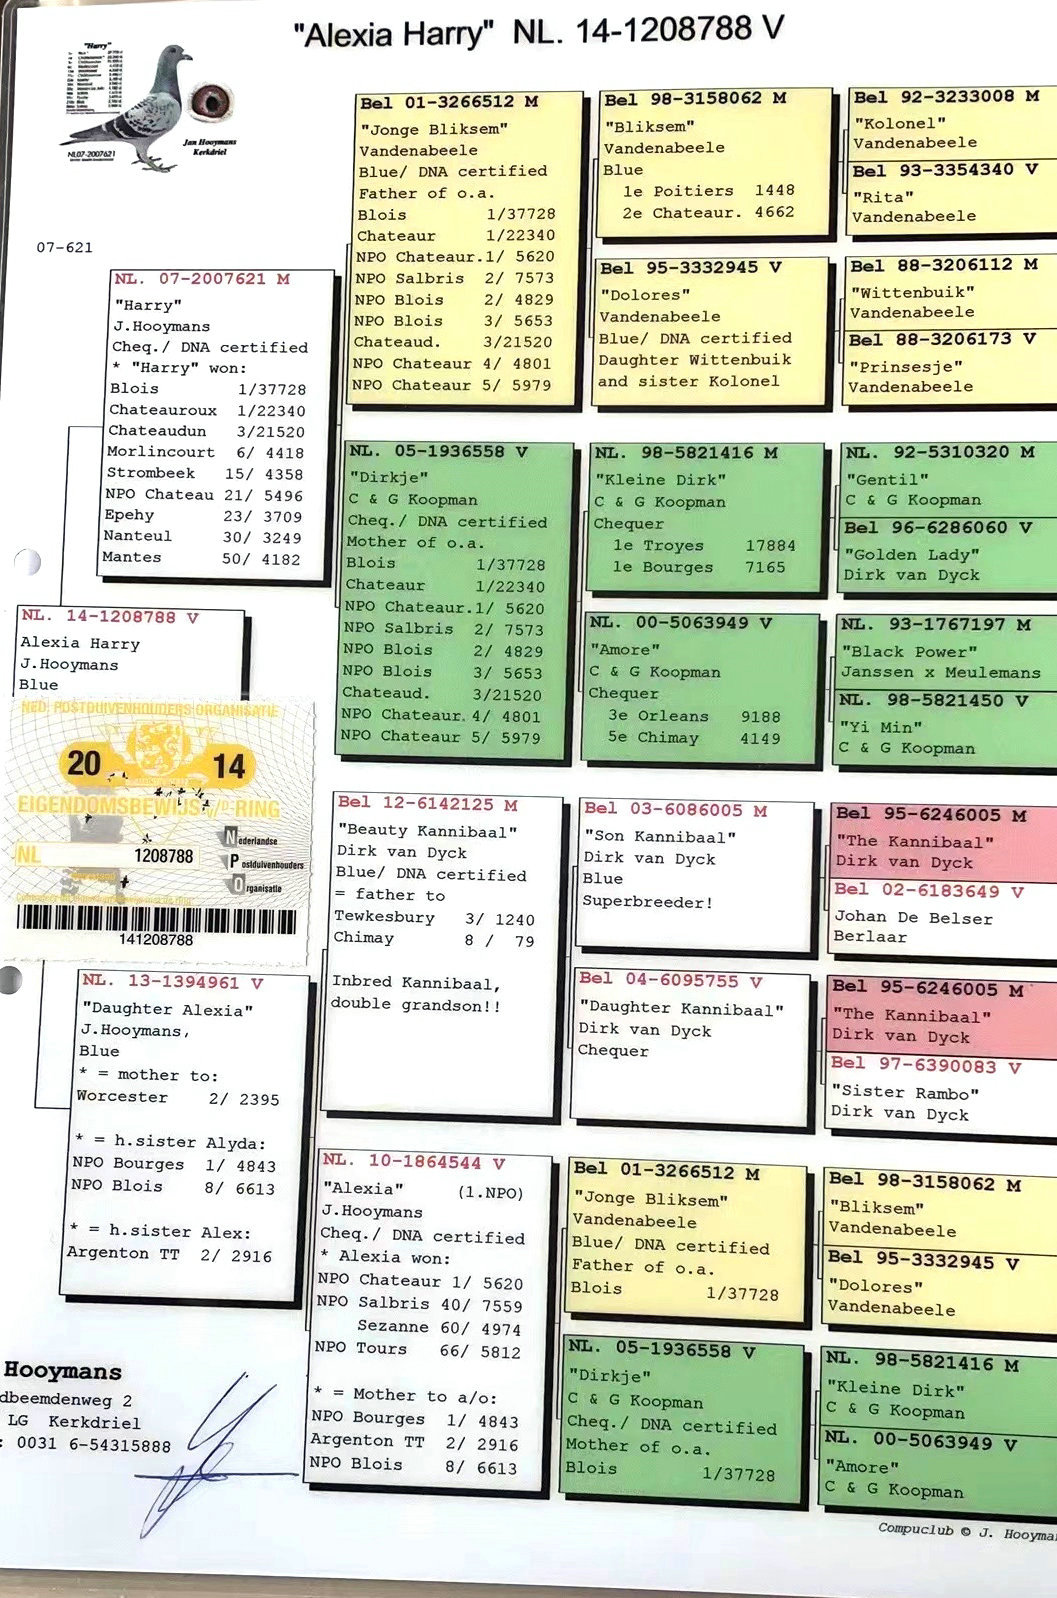 "Alexia Harry" NL. 14-1208788 V
"Harry"
NL07-2007621
Jan Hooymans
Kerkdriel
07-621
NL. 14-1208788 V
Alexia Harry
J.Hooymans
Blue
NED. POSTDUIVENHOUDERS ORGANISATIE
20 14
EIGENDOMSBEWIJS V/D RING
NL 1208788
Nederlandse
Postduivenhouders
Organisatie
141208788
NL. 07-2007621 M
"Harry"
J.Hooymans
Cheq./ DNA certified
* "Harry" won:
Blois 1/37728
Chateauroux 1/22340
Chateaudun 3/21520
Morlincourt 6/ 4418
Strombeek 15/ 4358
NPO Chateau 21/ 5496
Epehy 23/ 3709
Nanteul 30/ 3249
Mantes 50/ 4182
NL. 13-1394961 V
"Daughter Alexia"
J.Hooymans,
Blue
* = mother to:
Worcester 2/ 2395
* = h.sister Alyda:
NPO Bourges 1/ 4843
NPO Blois 8/ 6613
* = h.sister Alex:
Argenton TT 2/ 2916
Bel 01-3266512 M
"Jonge Bliksem"
Vandenabeele
Blue/ DNA certified
Father of o.a.
Blois 1/37728
Chateaur 1/22340
NPO Chateaur.1/ 5620
NPO Salbris 2/ 7573
NPO Blois 2/ 4829
NPO Blois 3/ 5653
Chateaud. 3/21520
NPO Chateaur 4/ 4801
NPO Chateaur 5/ 5979
NL. 05-1936558 V
"Dirkje"
C & G Koopman
Cheq./ DNA certified
Mother of o.a.
Blois 1/37728
Chateaur 1/22340
NPO Chateaur.1/ 5620
NPO Salbris 2/ 7573
NPO Blois 2/ 4829
NPO Blois 3/ 5653
Chateaud. 3/21520
NPO Chateaur. 4/ 4801
NPO Chateaur 5/ 5979
Bel 12-6142125 M
"Beauty Kannibaal"
Dirk van Dyck
Blue/ DNA certified
= father to
Tewkesbury 3/ 1240
Chimay 8 / 79
Inbred Kannibaal,
double grandson!!
NL. 10-1864544 V
"Alexia" (1.NPO)
J.Hooymans
Cheq./ DNA certified
* Alexia won:
NPO Chateaur 1/ 5620
NPO Salbris 40/ 7559
Sezanne 60/ 4974
NPO Tours 66/ 5812
* = Mother to a/o:
NPO Bourges 1/ 4843
Argenton TT 2/ 2916
NPO Blois 8/ 6613
Bel 98-3158062 M
"Bliksem"
Vandenabeele
Blue
1e Poitiers 1448
2e Chateaur. 4662
Bel 95-3332945 V
"Dolores"
Vandenabeele
Blue/ DNA certified
Daughter Wittenbuik
and sister Kolonel
NL. 98-5821416 M
"Kleine Dirk"
C & G Koopman
Chequer
1e Troyes 17884
1e Bourges 7165
NL. 00-5063949 V
"Amore"
C & G Koopman
Chequer
3e Orleans 9188
5e Chimay 4149
Bel 03-6086005 M
"Son Kannibaal"
Dirk van Dyck
Blue
Superbreeder!
Bel 04-6095755 V
"Daughter Kannibaal"
Dirk van Dyck
Chequer
Bel 01-3266512 M
"Jonge Bliksem"
Vandenabeele
Blue/ DNA certified
Father of o.a.
Blois 1/37728
NL. 05-1936558 V
"Dirkje"
C & G Koopman
Cheq./ DNA certified
Mother of o.a.
Blois 1/37728
Bel 92-3233008 M
"Kolonel"
Vandenabeele
Bel 93-3354340 V
"Rita"
Vandenabeele
Bel 88-3206112 M
"Wittenbuik"
Vandenabeele
Bel 88-3206173 V
"Prinsesje"
Vandenabeele
NL. 92-5310320 M
"Gentil"
C & G Koopman
Bel 96-6286060 V
"Golden Lady"
Dirk van Dyck
NL. 93-1767197 M
"Black Power"
Janssen x Meulemans
NL. 98-5821450 V
"Yi Min"
C & G Koopman
Bel 95-6246005 M
"The Kannibaal"
Dirk van Dyck
Bel 02-6183649 V
Johan De Belser
Berlaar
Bel 95-6246005 M
"The Kannibaal"
Dirk van Dyck
Bel 97-6390083 V
"Sister Rambo"
Dirk van Dyck
Bel 98-3158062 M
"Bliksem"
Vandenabeele
Bel 95-3332945 V
"Dolores"
Vandenabeele
NL. 98-5821416 M
"Kleine Dirk"
C & G Koopman
NL. 00-5063949 V
"Amore"
C & G Koopman
Hooymans
dbeemdenweg 2
LG Kerkdriel
: 0031 6-54315888
Compuclub © J. Hooyma